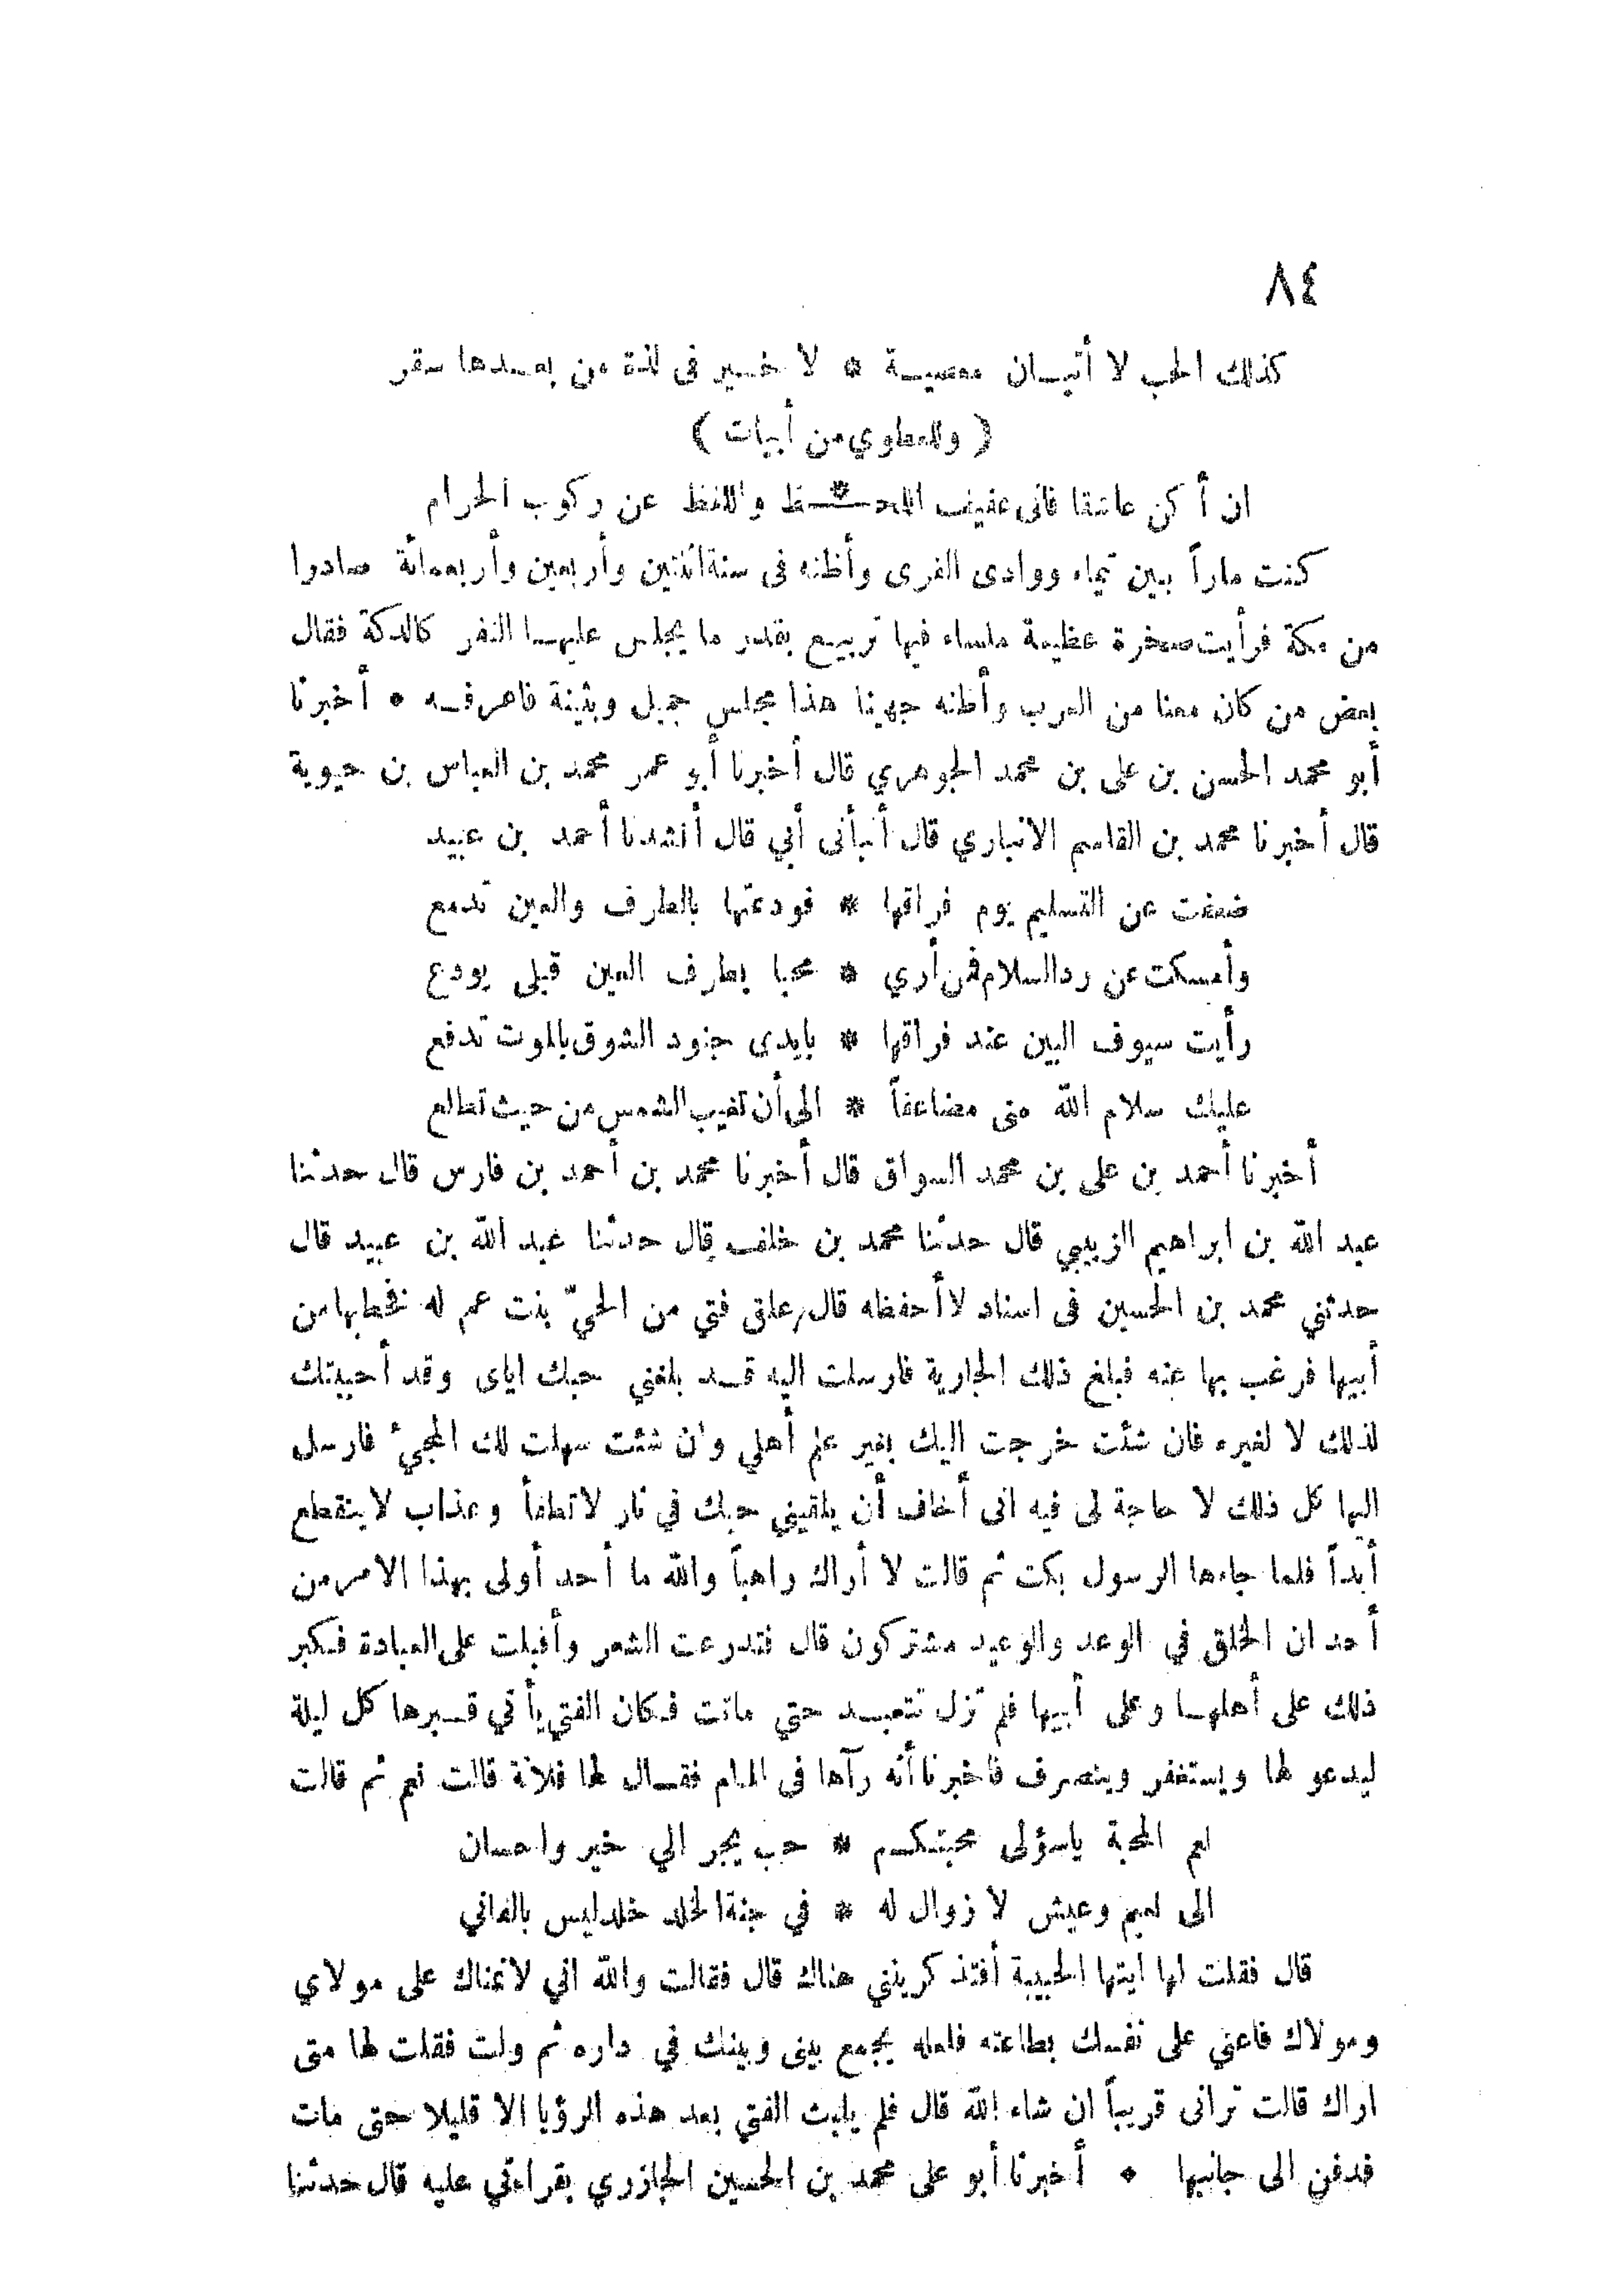 ٨٤
كذلك الحب لا أتيان معصية * لا خير فى لذة من بعدها سقر
( وللعطوي من أبيات )
ان أكن عاشقا فانى عفيف اللحـ * ـظ واللفظ عن ركوب الحرام
كنت ماراً بين تيماء ووادى القرى وأظنه فى سنة اثنتين وأربعين وأربعمائة صادرا
من مكة فرأيت صخرة عظيمة ملساء فيها تربيع بقدر ما يجلس عليها النفر كالدكة فقال
بعض من كان معنا من العرب وأظنه جهينا هذا مجلس جميل وبثينة فاعرفه * أخبرنا
أبو محمد الحسن بن على بن محمد الجوهري قال أخبرنا أبو عمر محمد بن العباس بن حيوية
قال أخبرنا محمد بن القاسم الانباري قال أنبأنى أبي قال أنشدنا أحمد بن عبيد
ضعفت عن التسليم يوم فراقها * فودعتها بالطرف والعين تدمع
وأمسكت عن رد السلام فمن أري * محبا بطرف العين قبلى يودع
رأيت سيوف البين عند فراقها * بايدى جنود الشوق بالموت تدفع
عليك سلام الله منى مضاعفاً * الى أن تغيب الشمس من حيث تطلع
أخبرنا أحمد بن على بن محمد السواق قال أخبرنا محمد بن أحمد بن فارس قال حدثنا
عبد الله بن ابراهيم الزبيبي قال حدثنا محمد بن خلف قال حدثنا عبد الله بن عبيد قال
حدثني محمد بن الحسين فى اسناد لا أحفظه قال علق فتي من الحيّ بنت عم له فخطبها من
أبيها فرغب بها عنه فبلغ ذلك الجارية فارسلت اليه قد بلغني حبك اياى وقد أحببتك
لذلك لا لغيره فان شئت خرجت اليك بغير علم أهلي وان شئت سهلت لك المجيء فارسل
اليها كل ذلك لا حاجة لى فيه انى أخاف أن يلقيني حبك في نار لا تطفأ وعذاب لا ينقطع
أبداً فلما جاءها الرسول بكت ثم قالت لا أراك راهباً والله ما أحد أولى بهذا الامر من
أحد ان الخلق في الوعد والوعيد مشتركون قال فتدرعت الشعر وأقبلت على العبادة فكبر
ذلك على أهلها وعلى أبيها فلم تزل تتعبد حتي ماتت فكان الفتي يأتي قبرها كل ليلة
ليدعو لها ويستغفر وينصرف فاخبرنا أنه رآها فى المنام فقال لها فلانة قالت نعم ثم قالت
نعم المحبة ياسؤلى محبتكم * حب يجر الي خير واحسان
الى نعيم وعيش لا زوال له * في جنة الخلد خلد ليس بالفاني
قال فقلت لها ايتها الحبيبة أفتذكرينني هناك قال فقالت والله اني لاتمناك على مولاي
ومولاك فاعني على نفسك بطاعته فلعله يجمع بينى وبينك في داره ثم ولت فقلت لها متى
اراك قالت ترانى قريباً ان شاء الله قال فلم يلبث الفتي بعد هذه الرؤيا الا قليلا حتى مات
فدفن الى جانبها * أخبرنا أبو على محمد بن الحسين الجازري بقراءتي عليه قال حدثنا